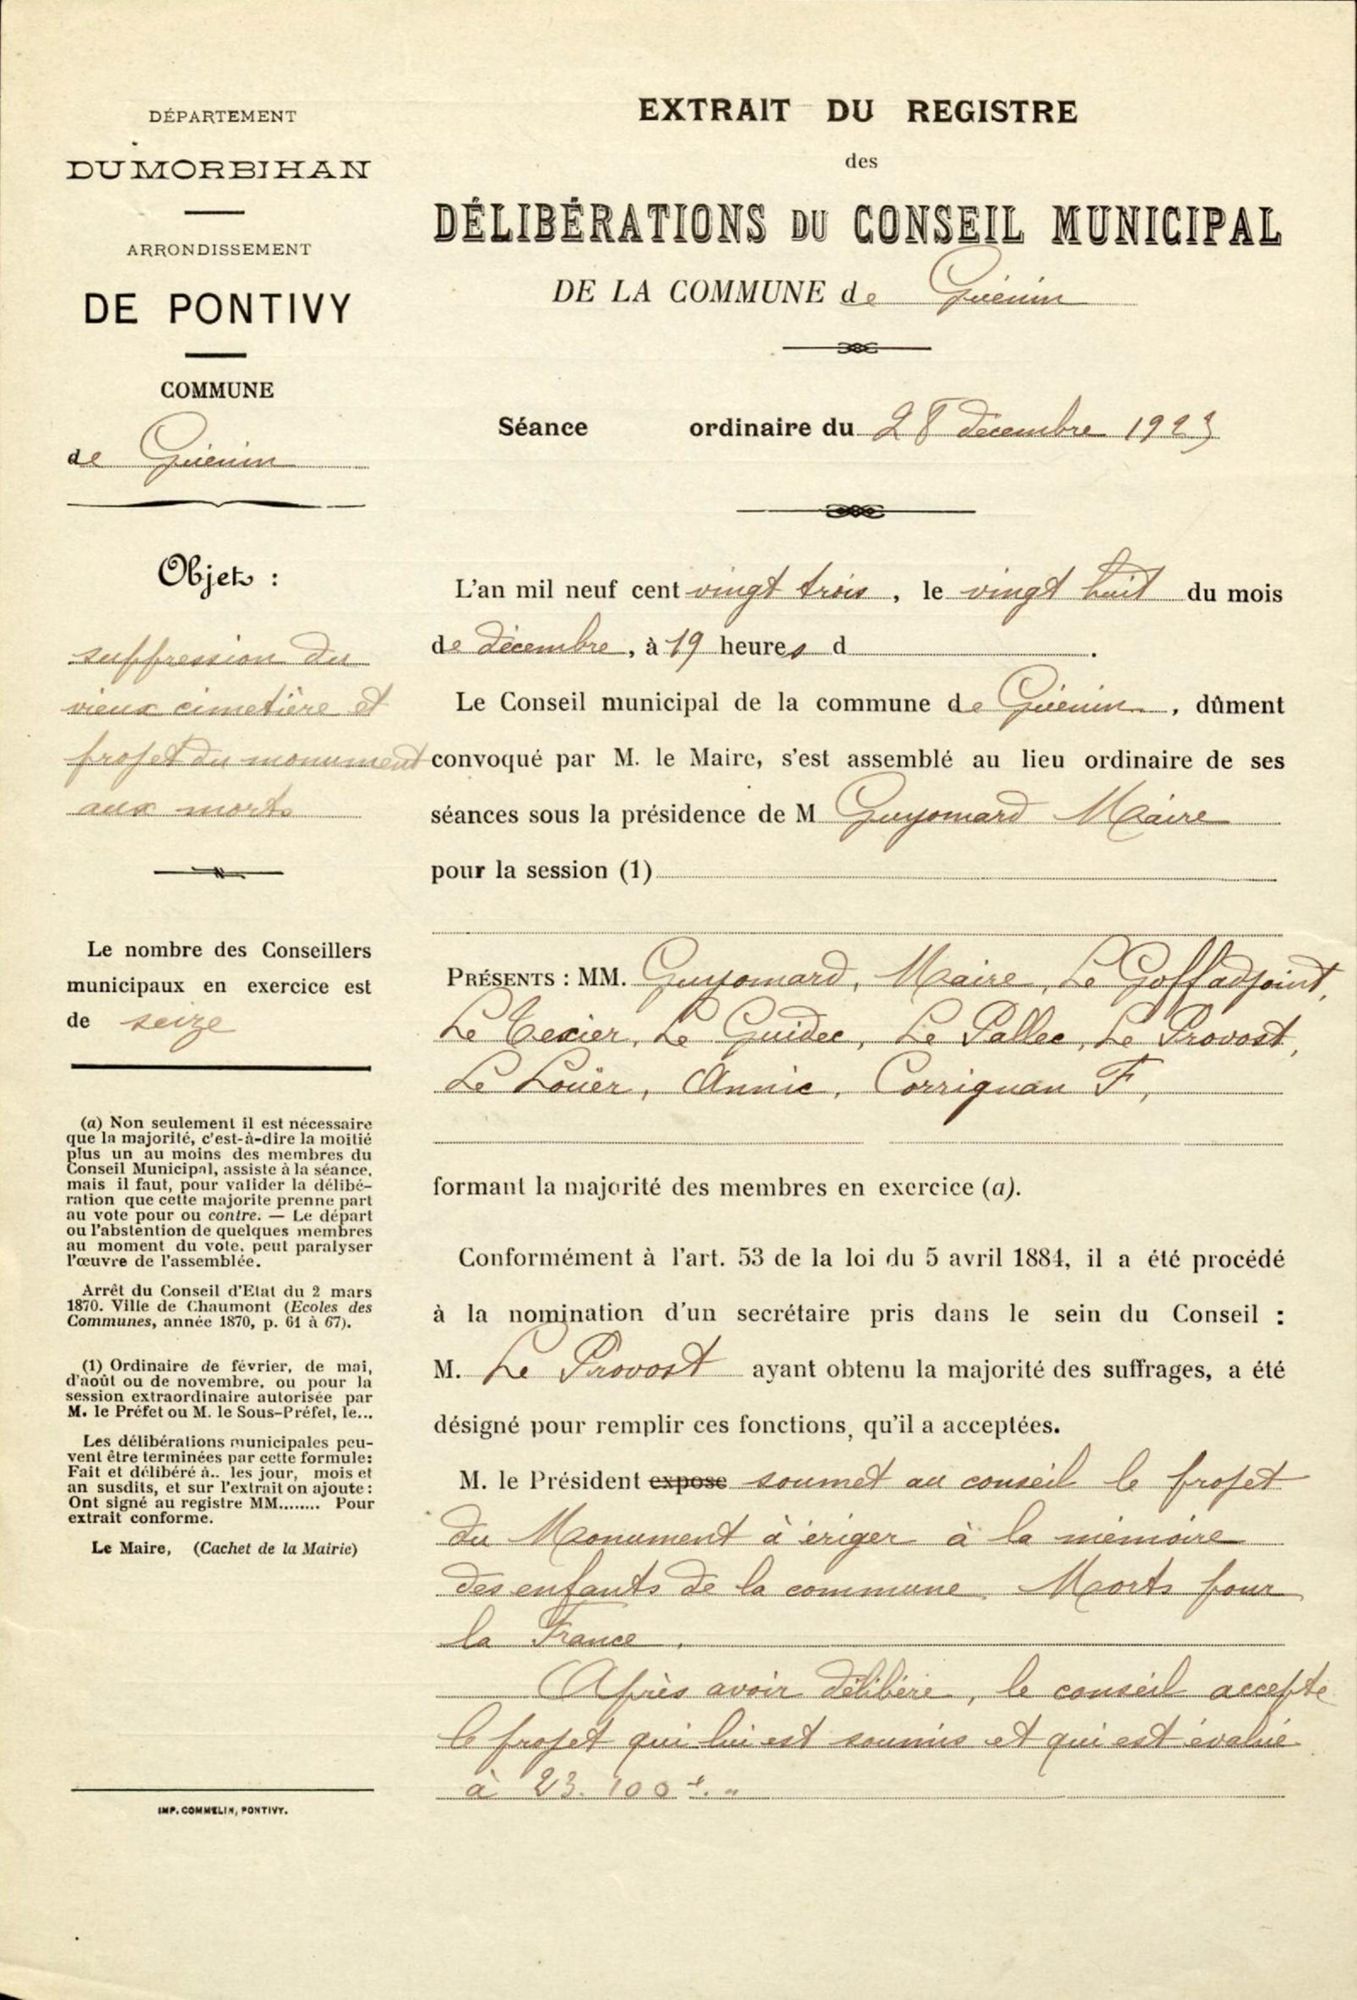 DÉPARTEMENT
DU MORBIHAN
ARRONDISSEMENT
DE PONTIVY
COMMUNE
de Guénin
Objet :
suppression du
vieux cimetière et
projet du monument
aux morts
Le nombre des Conseillers
municipaux en exercice est
de seize
(a) Non seulement il est nécessaire
que la majorité, c'est-à-dire la moitié
plus un au moins des membres du
Conseil Municipal, assiste à la séance,
mais il faut, pour valider la délibé-
ration que cette majorite prenne part
au vote pour ou contre. — Le départ
ou l'abstention de quelques membres
au moment du vote, peut paralyser
l'œuvre de l'assemblée.
Arrêt du Conseil d'Etat du 2 mars
1870. Ville de Chaumont (Ecoles des
Communes, année 1870, p. 61 à 67).
(1) Ordinaire de février, de mai,
d'août ou de novembre, ou pour la
session extraordinaire autorisée par
M. le Préfet ou M. le Sous-Préfet, le...
Les délibérations municipales peu-
vent être terminées par cette formule:
Fait et délibéré à.. les jour, mois et
an susdits, et sur l'extrait on ajoute :
Ont signé au registre MM........ Pour
extrait conforme.
Le Maire, (Cachet de la Mairie)
IMP. COMMELIN, PONTIVY.
EXTRAIT DU REGISTRE
des
DÉLIBÉRATIONS DU CONSEIL MUNICIPAL
DE LA COMMUNE de Guénin
Séance ordinaire du 28 décembre 1923
L'an mil neuf cent vingt trois, le vingt huit du mois
de décembre, à 19 heures d .
Le Conseil municipal de la commune de Guénin, dûment
convoqué par M. le Maire, s'est assemblé au lieu ordinaire de ses
séances sous la présidence de M Guyomard Maire
pour la session (1)
PRÉSENTS : MM. Guyomard, Maire, Le Goff adjoint,
Le Texier, Le Guidec, Le Pallec, Le Provost,
Le Louër, Annic, Corrignan F,
formant la majorité des membres en exercice (a).
Conformément à l'art. 53 de la loi du 5 avril 1884, il a été procédé
à la nomination d'un secrétaire pris dans le sein du Conseil :
M. Le Provost ayant obtenu la majorité des suffrages, a été
désigné pour remplir ces fonctions, qu'il a acceptées.
M. le Président expose soumet au conseil le projet
du Monument à ériger à la mémoire
des enfants de la commune Morts pour
la France.
Après avoir délibéré, le conseil accepte
le projet qui lui est soumis et qui est évalué
à 23.100 f. "